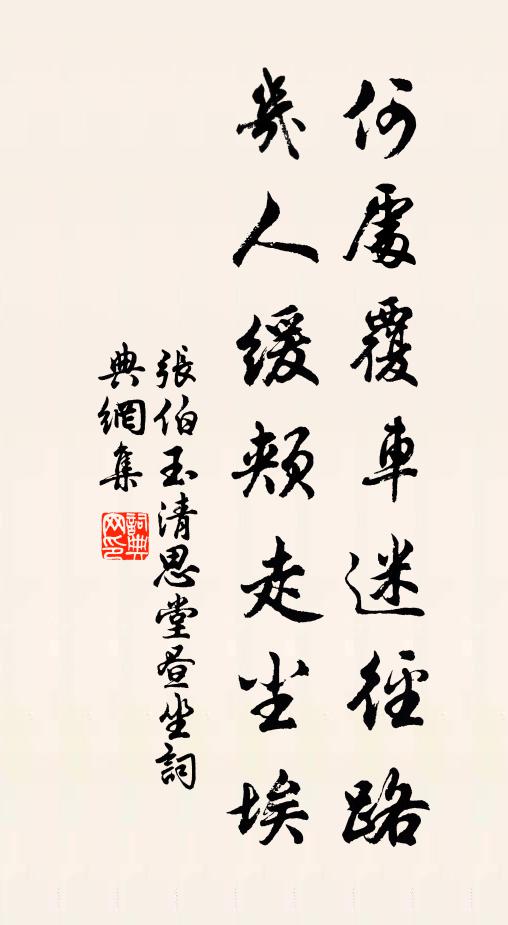 何處覆車迷徑路
幾人緩頰走尘埃
張伯玉清思堂昼坐詞
典網集
詞典
网印